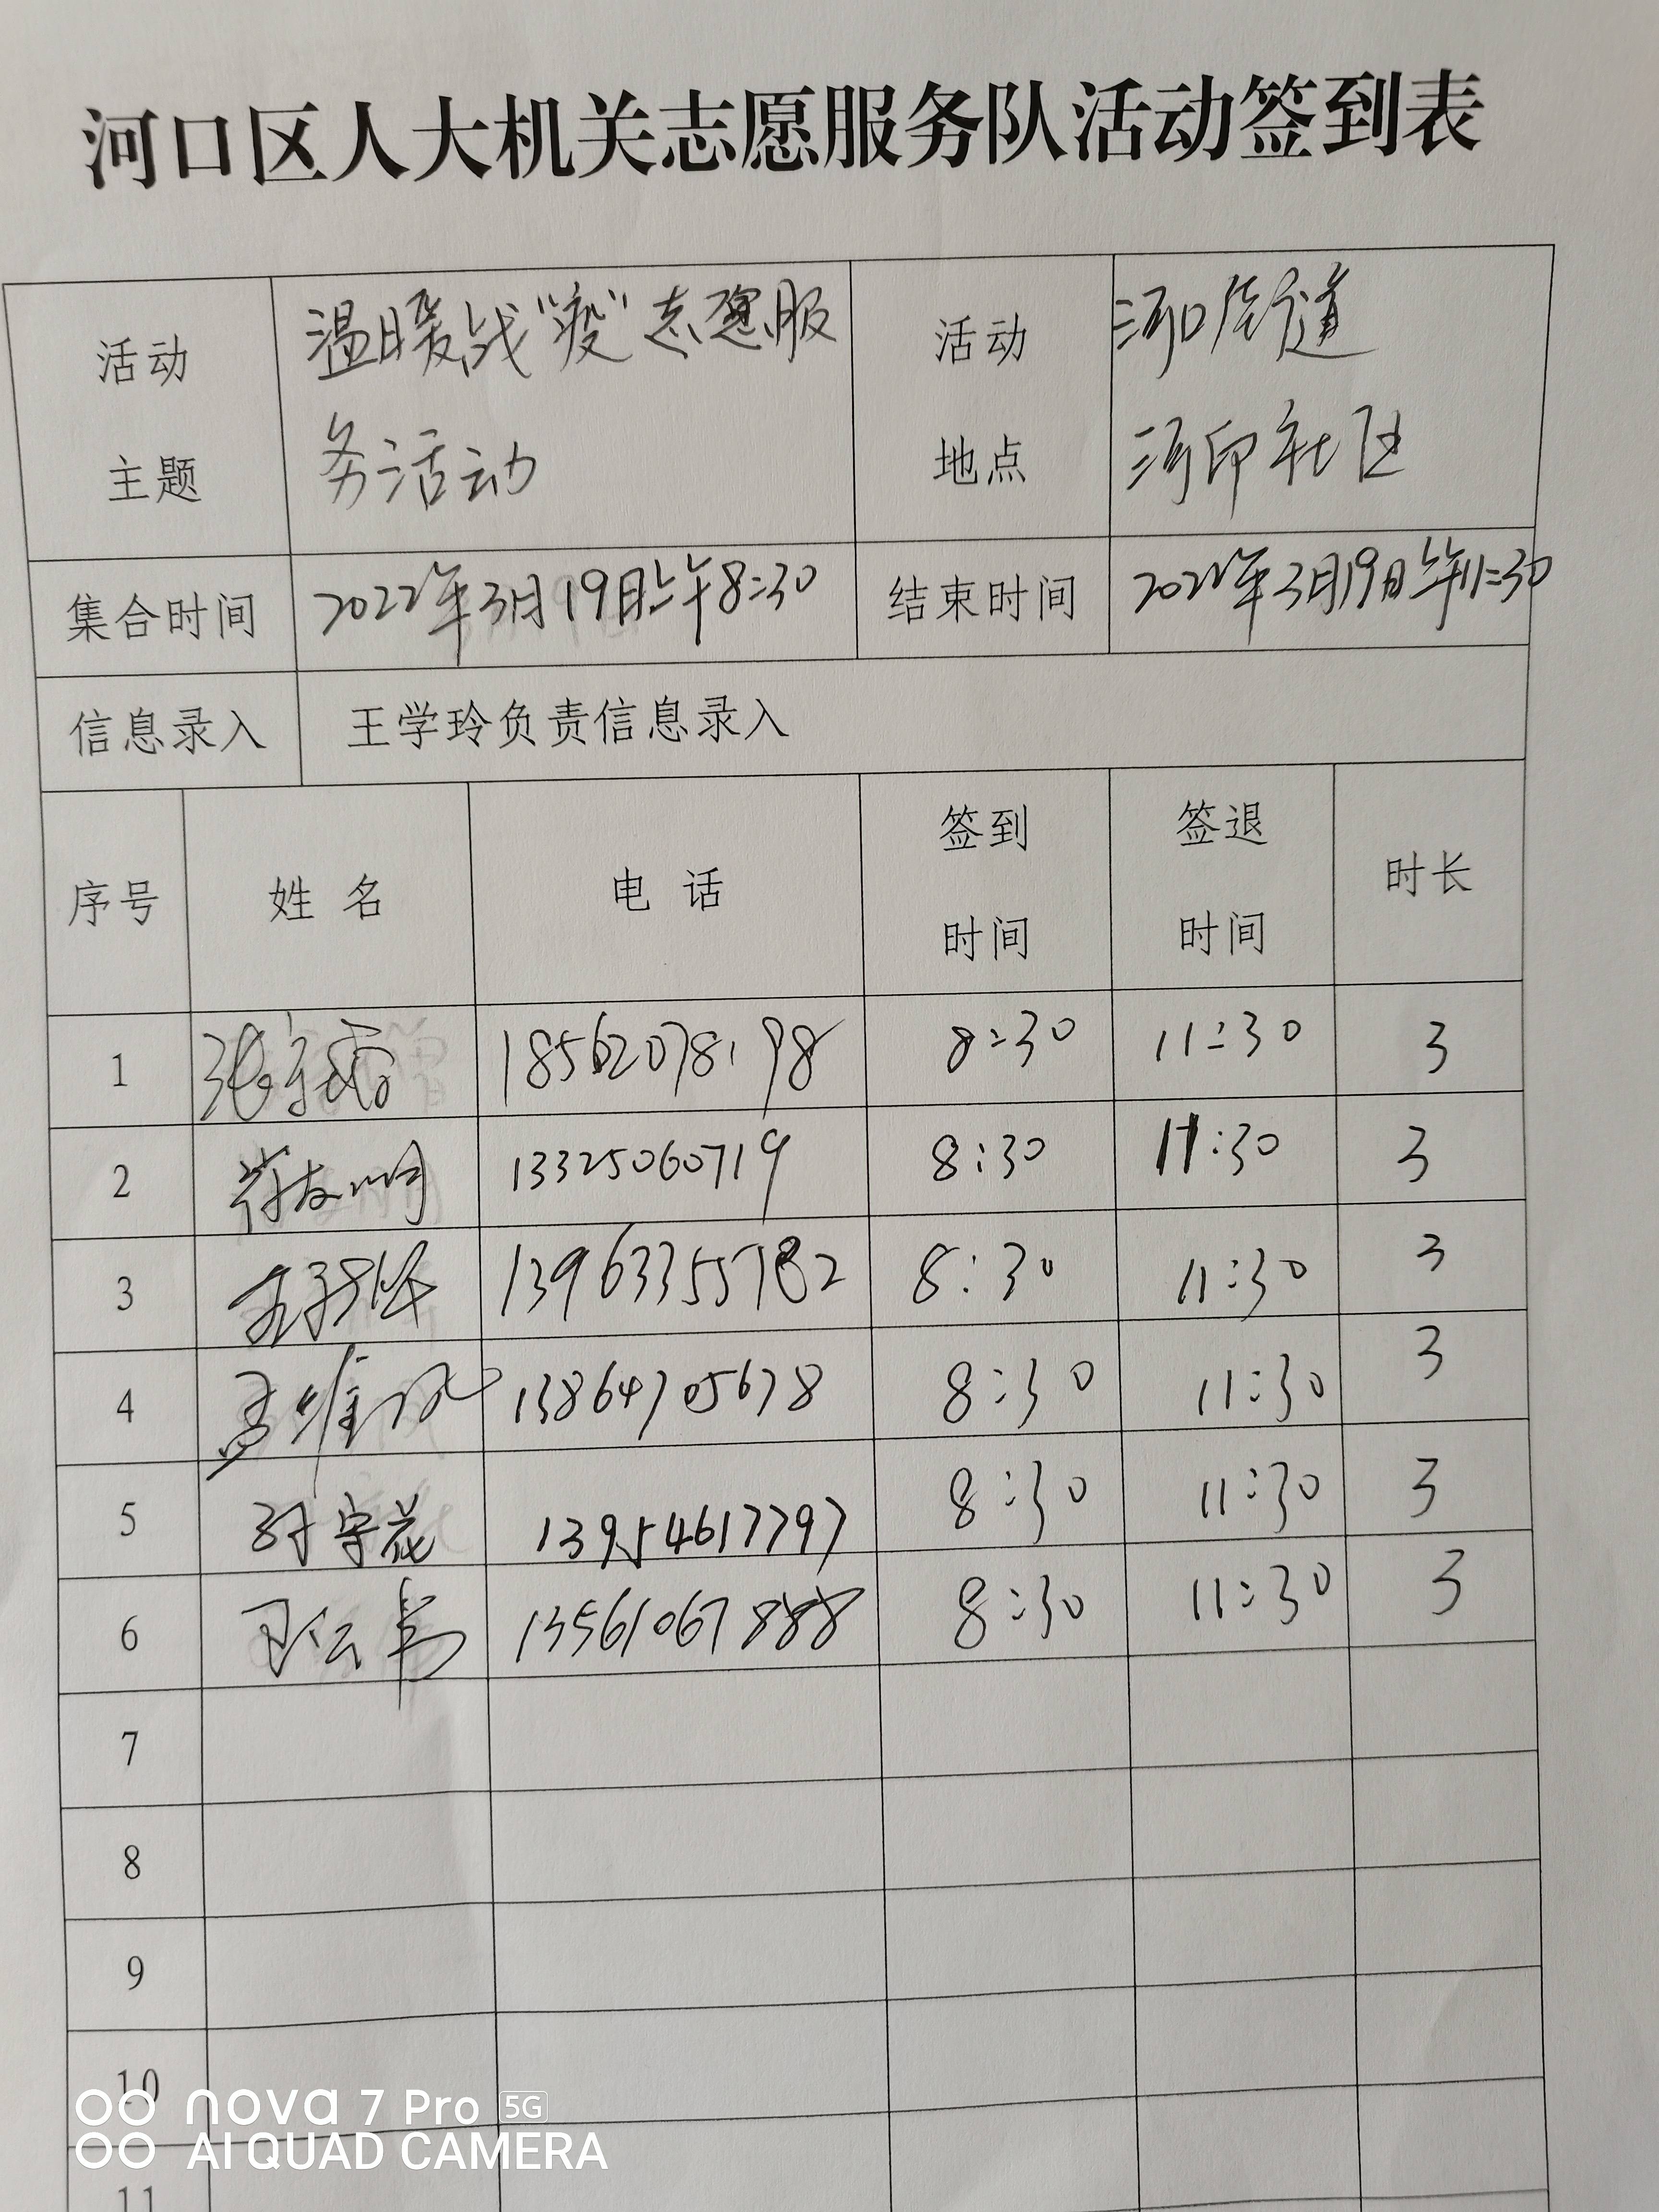 河口区人大机关志愿服务队活动签到表
活动 温暖战“疫”志愿服 活动 河口街道
主题 务活动 地点 河印社区
集合时间 2022年3月19日上午8:30 结束时间 2022年3月19日上午11:30
信息录入 王学玲负责信息录入
签到 签退
序号 姓名 电话 时长
时间 时间
1 18562078198 8:30 11:30 3
2 13325060719 8:30 11:30 3
3 13963355782 8:30 11:30 3
4 孟维风 13864705678 8:30 11:30 3
5 孙守花 13954617797 8:30 11:30 3
6 13561067888 8:30 11:30 3
7
8
9
10
11
nova 7 Pro 5G
AI QUAD CAMERA